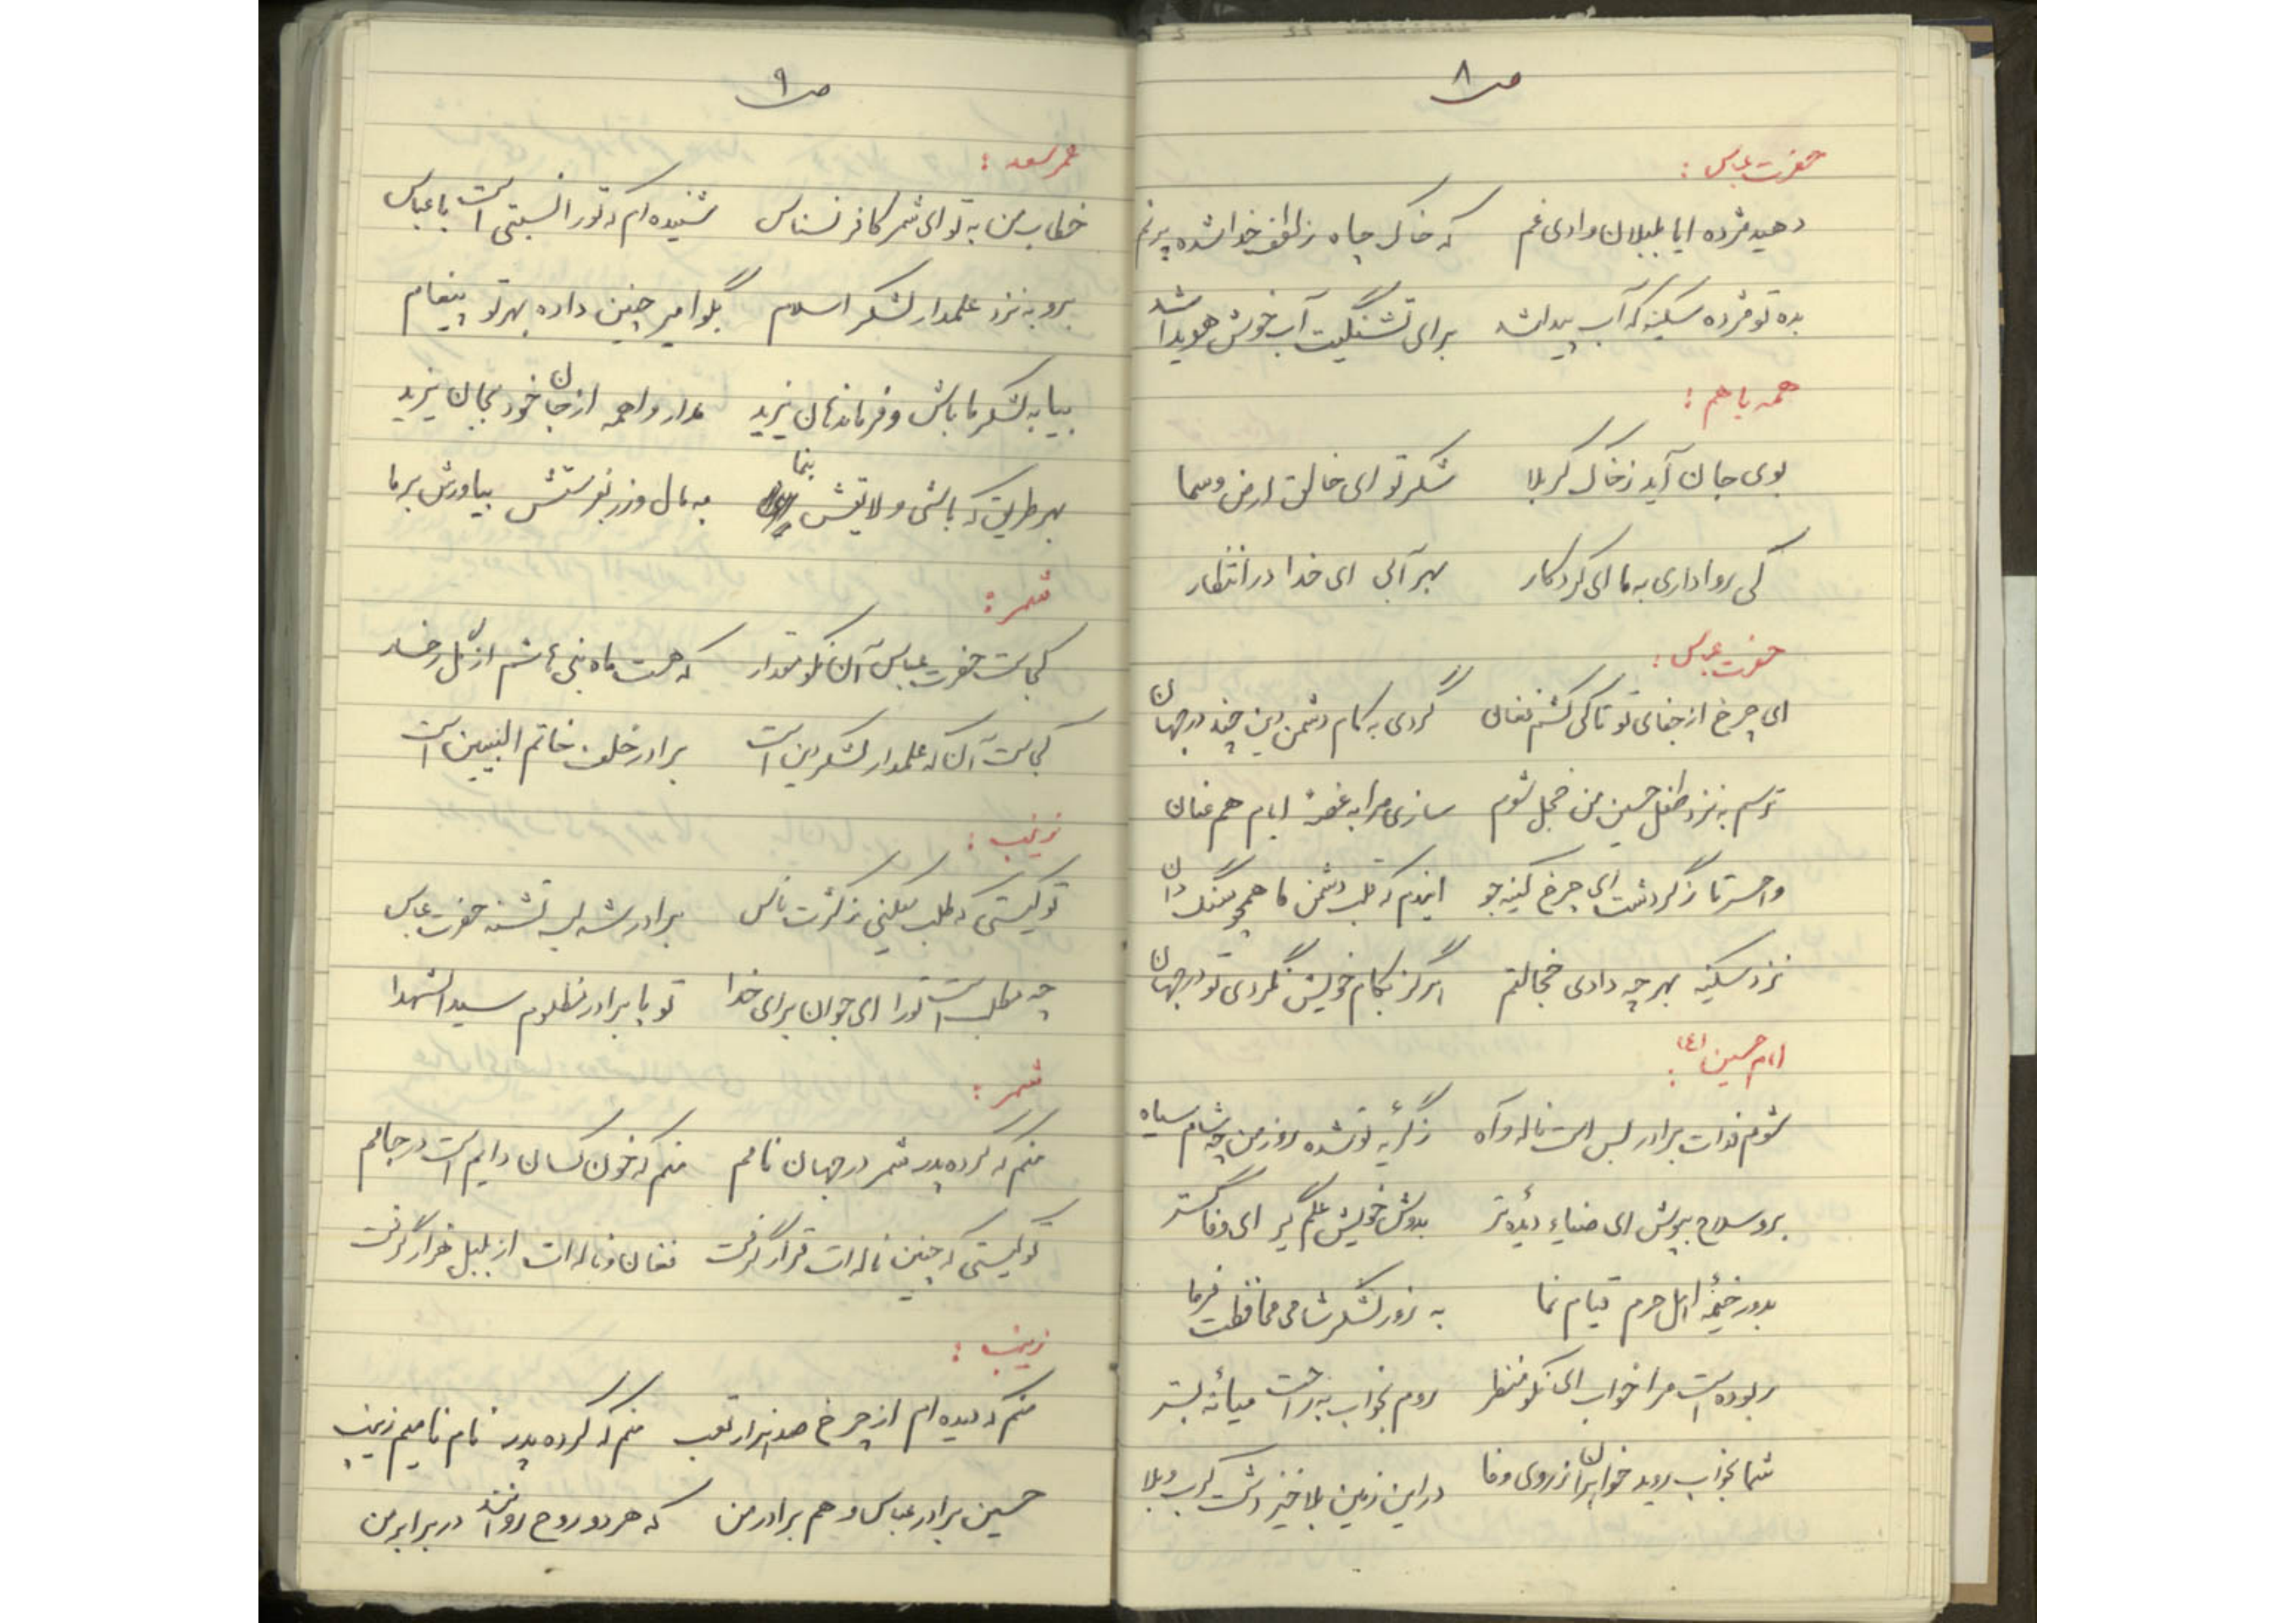 ص ۸
حضرت عباس :
دهید مژده ایا بلبلان وادی غم که خاک چاه ز لطف خدا شده پر نم
بده تو مژده سکینه که آب پیدا شد برای تشنگیت آب خوش هویدا شد
همه با هم :
بوی جان آید ز خاک کربلا شکر تو ای خالق ارض و سما
کی روا داری به ما ای کردگار بهر آبی ای خدا در انتظار
حضرت عباس :
ای چرخ از جفای تو تا کی کشم فغان گردی به کام دشمن دین چند در جهان
ترسم به نزد طفل حسین من خجل شوم سازی مرا به غصهٔ ایام هم عنان
واحسرتا ز گردشت ای چرخ کینه جو ایندم که قلب دشمن ما همچو سنگ دان
نزد سکینه بهر چه دادی خجالتم هرگز بکام خویش نگردی تو در جهان
امام حسین (ع) :
شوم فدات برادر بس است ناله و آه ز گریهٔ تو شده روز من چه شام سیاه
برو سلاح بپوش ای ضیاء دیدهٔ تر بدوش خویش علم گیر ای وفا گستر
بدور خیمهٔ اهل حرم قیام نما به زور لشکر شامی محافظت فرما
ربوده است مرا خواب ای نکو منظر روم بخواب به راحت میانهٔ بستر
شما بخواب روید خواهران از روی وفا در این زمین بلاخیز دشت کرب و بلا
ص ۹
عمر سعد :
خطاب من به تو ای شمر کافر نسناس شنیده ام که تو را نسبتی است با عباس
برو به نزد علمدار لشکر اسلام بگو امیر چنین داده بهر تو پیغام
بیا به لشکر ما باش و فرماندهان یزید مدار واهمه از جان خود بجان یزید
بهر طریق که باشی ولایتش بنما به مال و زر بفرستش بیاورش بر ما
شمر :
کجاست حضرت عباس آن نکو مقدار که هست ماه بنی هاشم از گل رخسار
کجاست آن که علمدار لشکر دین است برادر خلف خاتم النبیین است
زینب :
تو کیستی که طلب میکنی ز کثرت ناس برادر شه لب تشنه حضرت عباس
چه مطلب است تو را ای جوان برای خدا تو با برادر مظلوم سید الشهدا
شمر :
منم که کرده پدر شمر در جهان نامم منم که خون کسان دایم است در جامم
تو کیستی که چنین ناله ات قرار گرفت فغان و ناله ات از بلبل هزار گرفت
زینب :
منم که دیده ام از چرخ صد هزار تعب منم که کرده پدر نام نامیم زینب
حسین برادر عباس و هم برادر من که هر دو روح روانند در برابر من